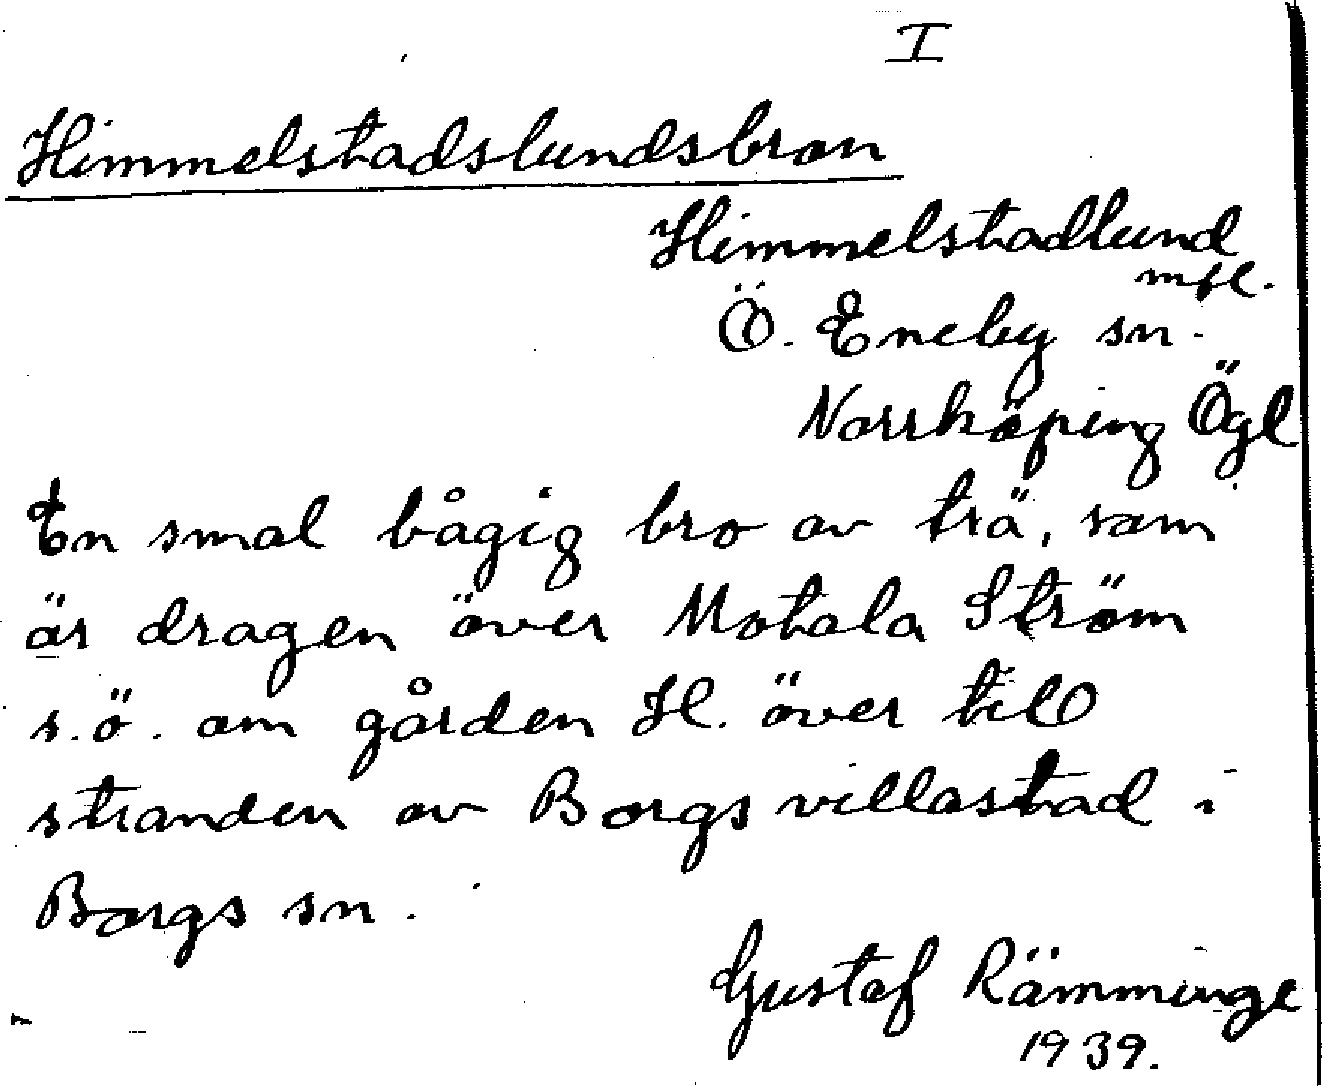 I
Himmelstadslundsbron
Himmelstadlund
mfl.
Ö. Eneby sn.
Norrköping Ögl
En smal bågig bro av trä, som
är dragen över Motala Ström
s.ö. om gården H. över till
stranden av Borgs villastad i
Borgs sn.
Gustaf Rämminge
1939.